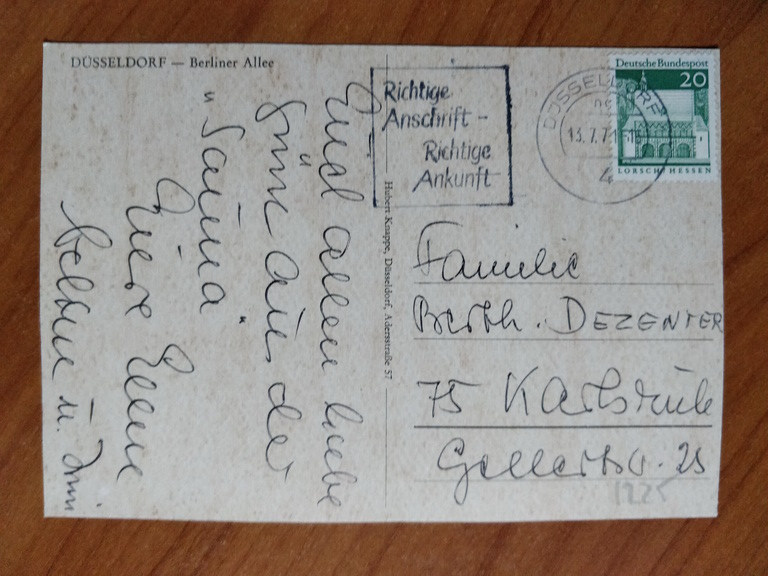 DÜSSELDORF — Berliner Allee
Euch allen liebe
Grüße aus der
"Sauna"
Eure Ellen
u.
Hubert Knappe, Düsseldorf, Adersstraße 57
Richtige
Anschrift -
Richtige
Ankunft
DÜSSELDORF
13.7.71
4
Deutsche Bundespost
20
LORSCH HESSEN
Familie
Berth. DEZENTER
75 Karlsruhe
Gellertstr. 25
1225